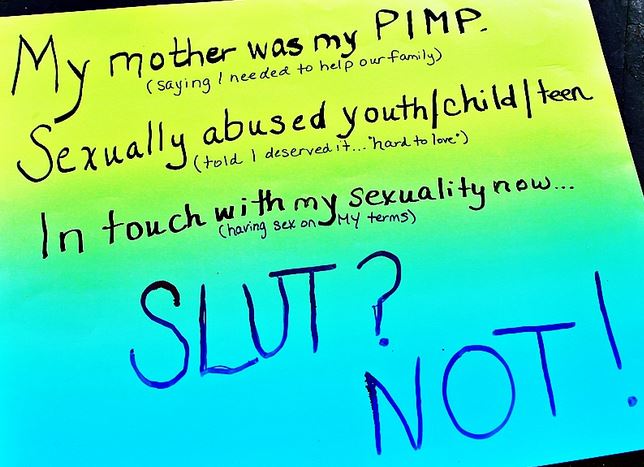 My mother was my PIMP.
(saying I needed to help our family)
Sexually abused youth/child/teen
(told I deserved it... "hard to love")
In touch with my sexuality now...
(having sex on My terms)
SLUT?
NOT!